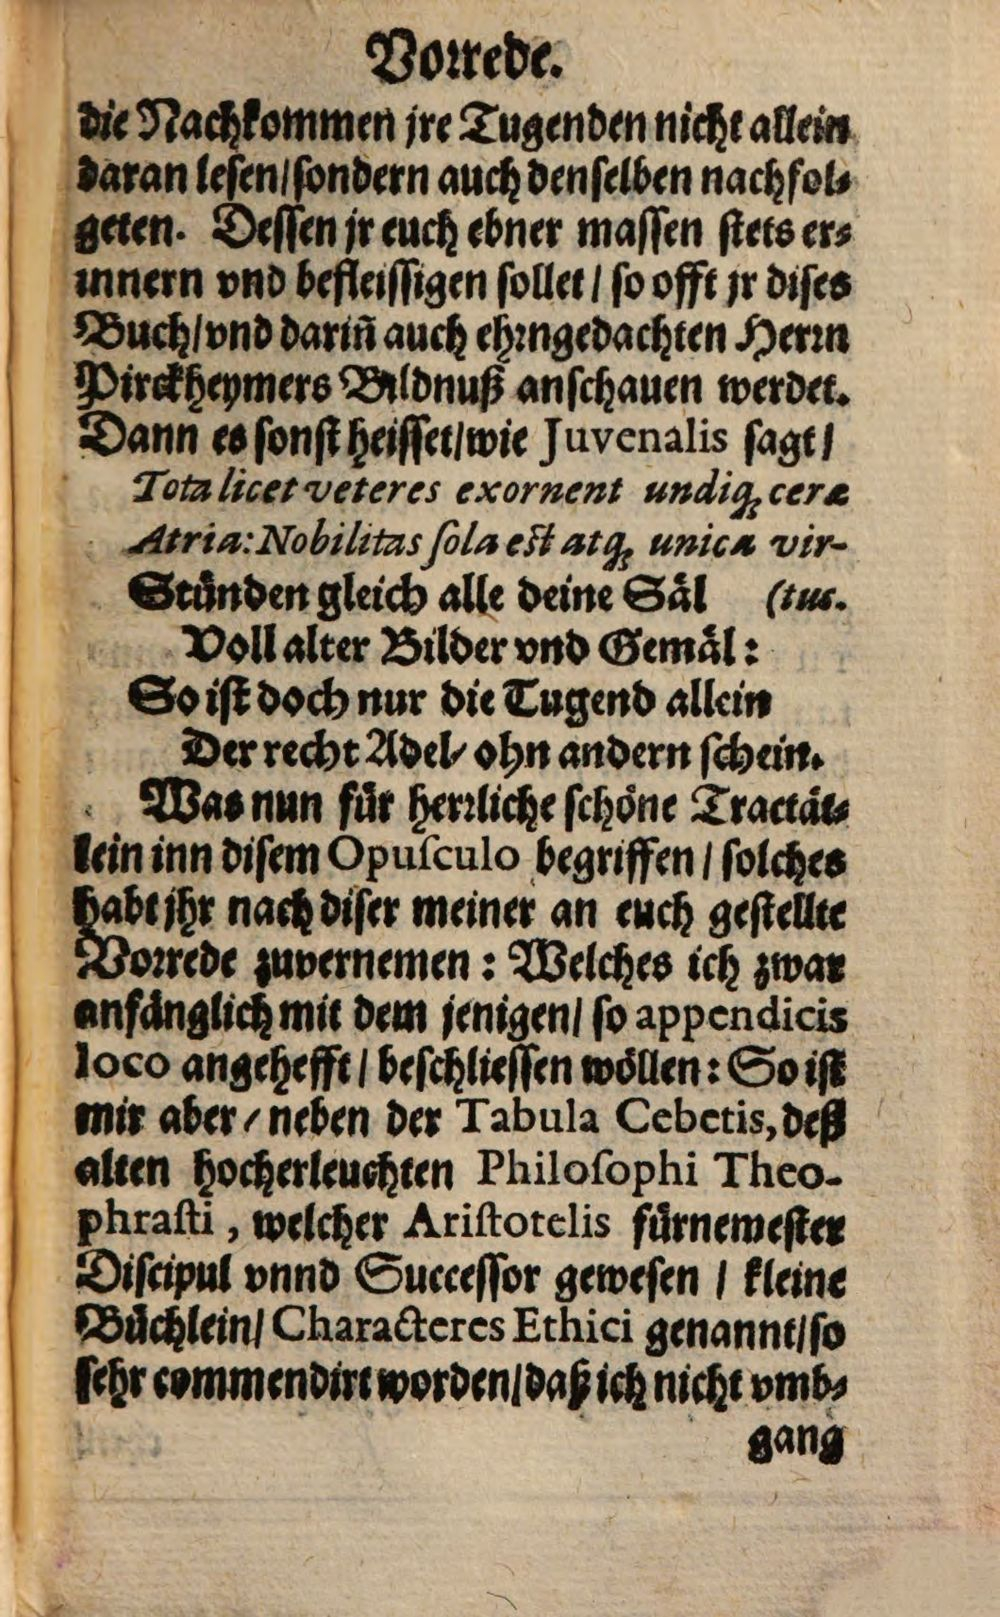 Vorrede.
die Nachkommen jre Tugenden nicht allein
daran lesen/sondern auch denselben nachfol⸗
geten. Dessen jr euch ebner massen stets er⸗
innern vnd befleissigen sollet / so offt jr dises
Buch/vnd dariñ auch ehrngedachten Herrn
Pirckheymers Bildnuß anschauen werdet.
Dann es sonst heisset/wie Juvenalis sagt/
Tota licet veteres exornent undiq; ceræ
Atria: Nobilitas ſola eſt atq; unica vir-
Stůnden gleich alle deine Säl (tus.
Voll alter Bilder vnd Gemäl:
So ist doch nur die Tugend allein
Der recht Adel/ ohn andern schein.
Was nun für herrliche schöne Tractät⸗
lein inn disem Opuſculo begriffen / solches
habt jhr nach diser meiner an euch gestellte
Vorrede zuvernemen: Welches ich zwar
anfänglich mit dem jenigen/ so appendicis
loco angehefft / beschliessen wöllen: So ist
mir aber / neben der Tabula Cebetis, deß
alten hocherleuchten Philoſophi Theo-
phraſti, welcher Ariſtotelis fürnemester
Discipul vnnd Successor gewesen / kleine
Büchlein/ Characteres Ethici genannt/so
sehr commendirt worden/daß ich nicht vmb⸗
gang